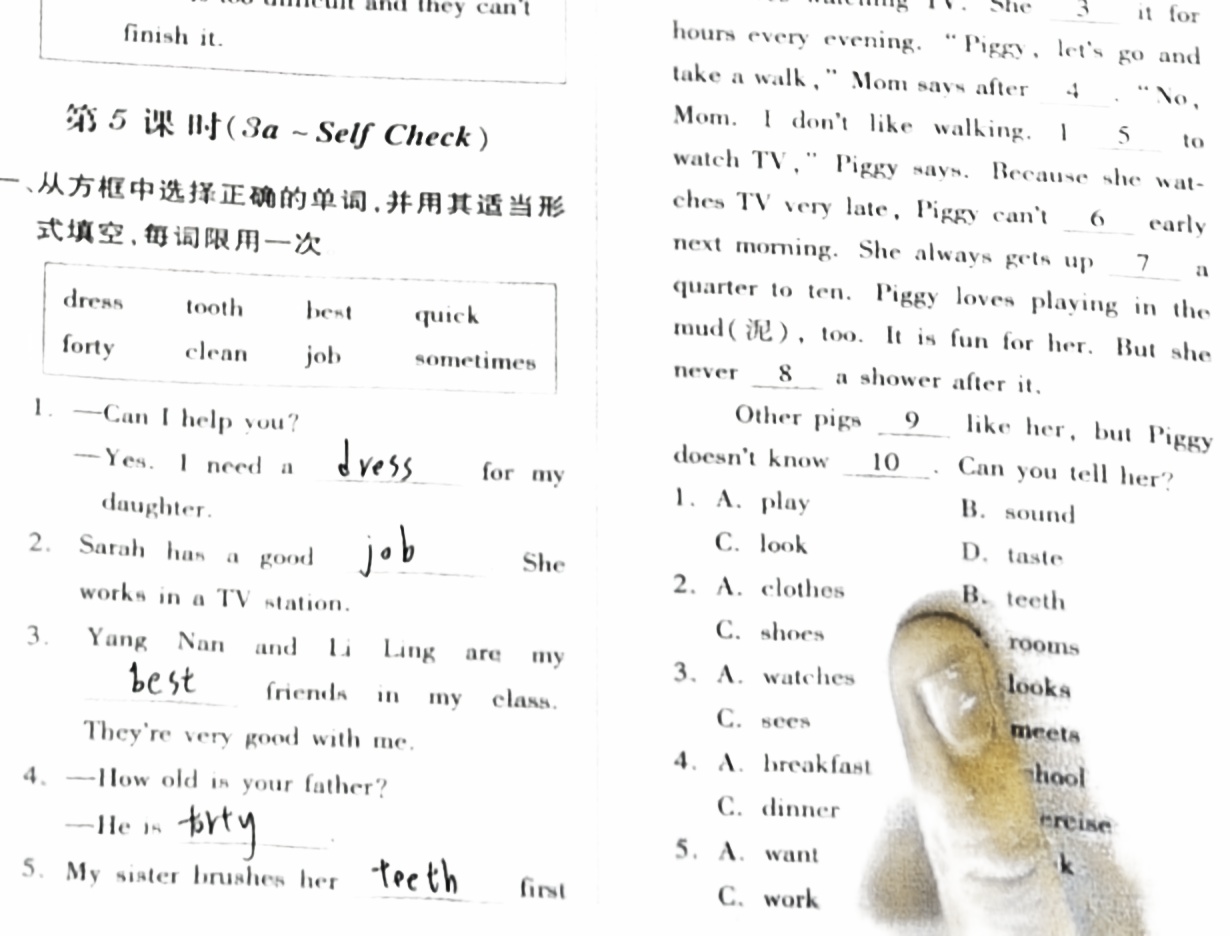 finish it.
第5课时(3a ~ Self Check)
一、从方框中选择正确的单词,并用其适当形
式填空,每词限用一次
dress tooth best quick
forty clean job sometimes
1. —Can I help you?
—Yes. I need a dress for my
daughter.
2. Sarah has a good job She
works in a TV station.
3. Yang Nan and Li Ling are my
best friends in my class.
They're very good with me.
4. —How old is your father?
—He is forty .
5. My sister brushes her teeth first
TV. She 3 it for
hours every evening. "Piggy, let's go and
take a walk," Mom says after 4 . "No,
Mom. I don't like walking. I 5 to
watch TV," Piggy says. Because she wat-
ches TV very late, Piggy can't 6 early
next morning. She always gets up 7 a
quarter to ten. Piggy loves playing in the
mud(泥), too. It is fun for her. But she
never 8 a shower after it.
Other pigs 9 like her, but Piggy
doesn't know 10 . Can you tell her?
1. A. play B. sound
C. look D. taste
2. A. clothes B. teeth
C. shoes rooms
3. A. watches looks
C. sees meets
4. A. breakfast
C. dinner
5. A. want
C. work